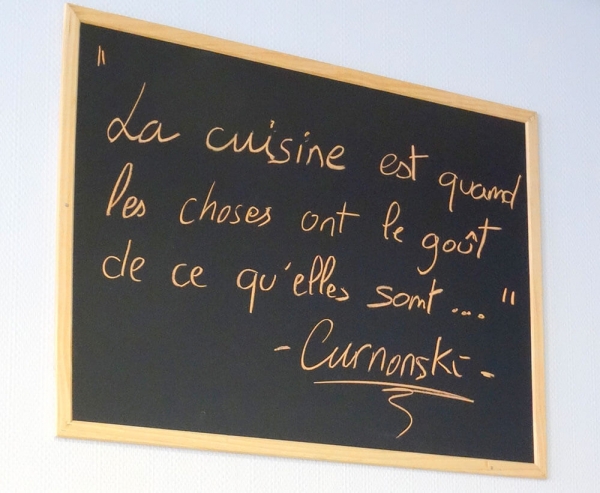 "La cuisine est quand
les choses ont le goût
de ce qu'elles sont ..."
- Curnonski -